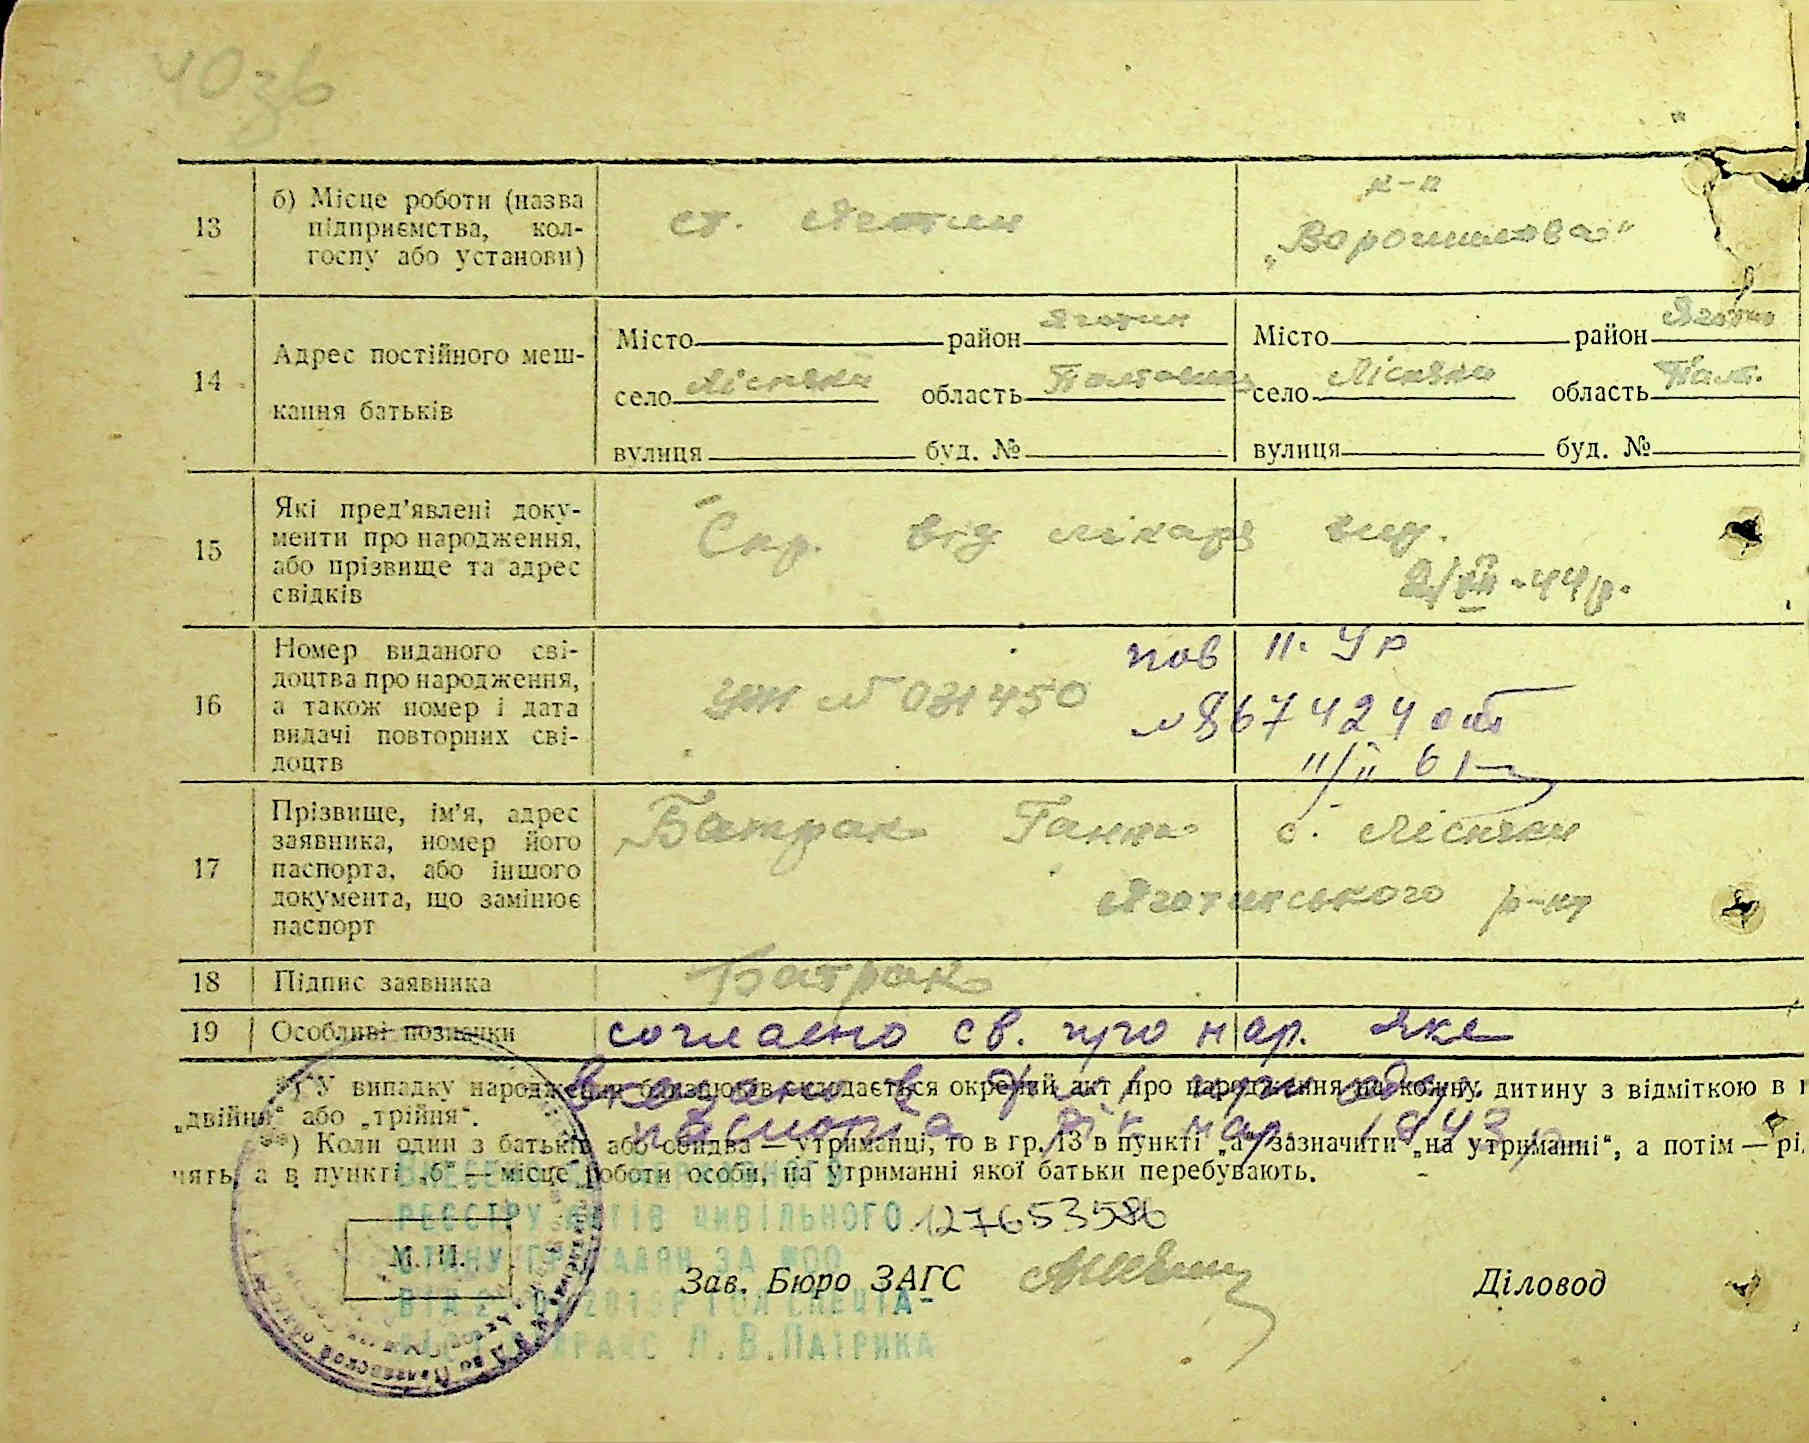 13
б) Місце роботи (назва
підприємства, кол-
госпу або установи)
ст. Яготин
к-п
„Ворошилова"
14
Адрес постійного меш-
кання батьків
Місто район Яготин
село Лісняки область Полтавськ
вулиця буд. №
Місто район Яготин
село Лісняки область Полт.
вулиця буд. №
15
Які пред’явлені доку-
менти про народження,
або прізвище та адрес
свідків
Спр. від лікаря вид.
44р.
16
Номер виданого сві-
доцтва про народження,
а також номер і дата
видачі повторних сві-
доцтв
№ 031450
пов II. УР
№ 867424 от
11/II 61
17
Прізвище, ім’я, адрес
заявника, номер його
паспорта, або іншого
документа, що замінює
паспорт
Батрак Ганна с. Лісняки
Яготинського р-ну
18
Підпис заявника
Батрак
19
Особливі позначки
согласно св. про нар. яке
*) У випадку народження близнюків складається окремий акт про народження на кожну дитину з відміткою в
„двійня“ або „трійня“.
паспорта рік нар. 1943
**) Коли один з батьків або обидва — утриманці, то в гр. 13 в пункті „а“ зазначити „на утриманні“, а потім —
нять, а в пункті „б“ — місце роботи особи, на утриманні якої батьки перебувають.
РЕЄСТРУ АКТІВ ЦИВІЛЬНОГО 127653586
СТАНУ ГРОМАДЯН ЗА №00
М. П.
Зав. Бюро ЗАГС
Діловод
Л.В.ПАТРИКА